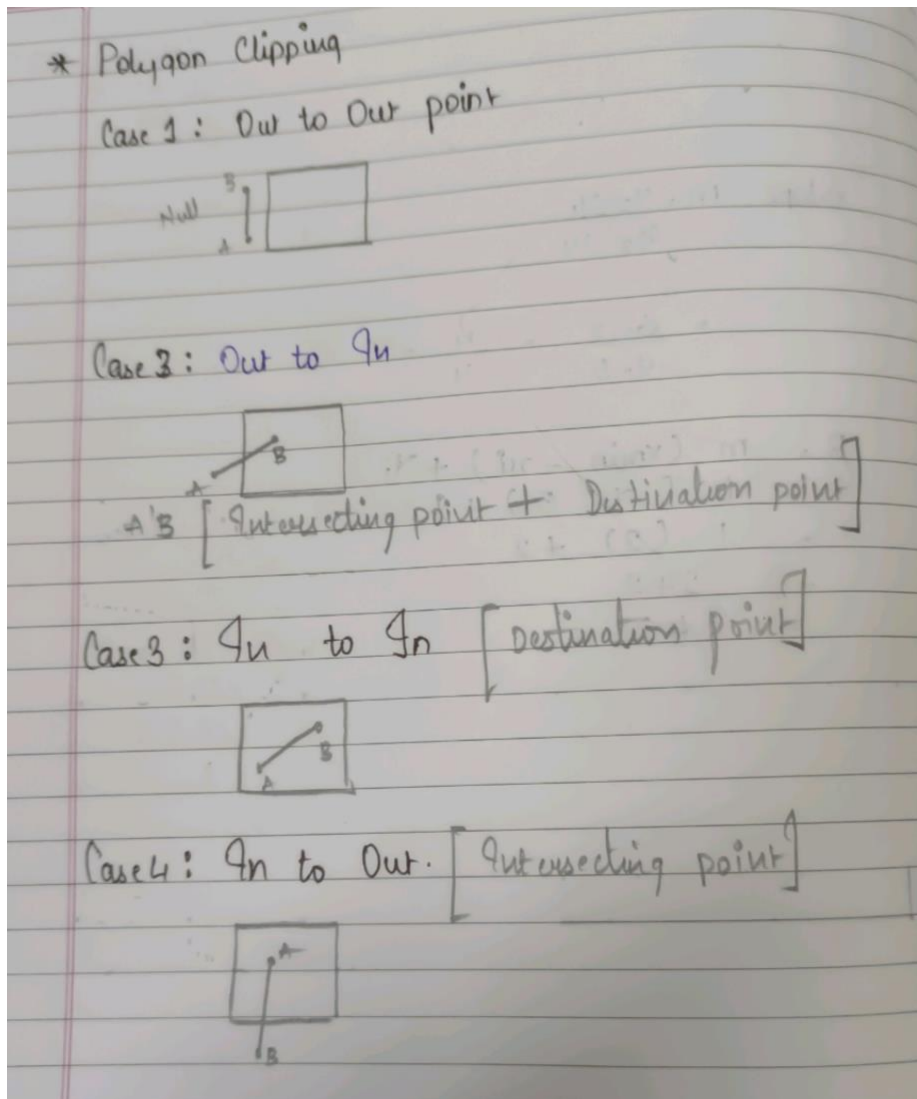 * Polygon Clipping
Case 1: Out to Out point
B
Null
A
Case 3: Out to In
B
A
A'B [Intersecting point + Destination point]
Case 3: In to In [Destination point]
B
A
Case 4: In to Out. [Intersecting point]
A
B